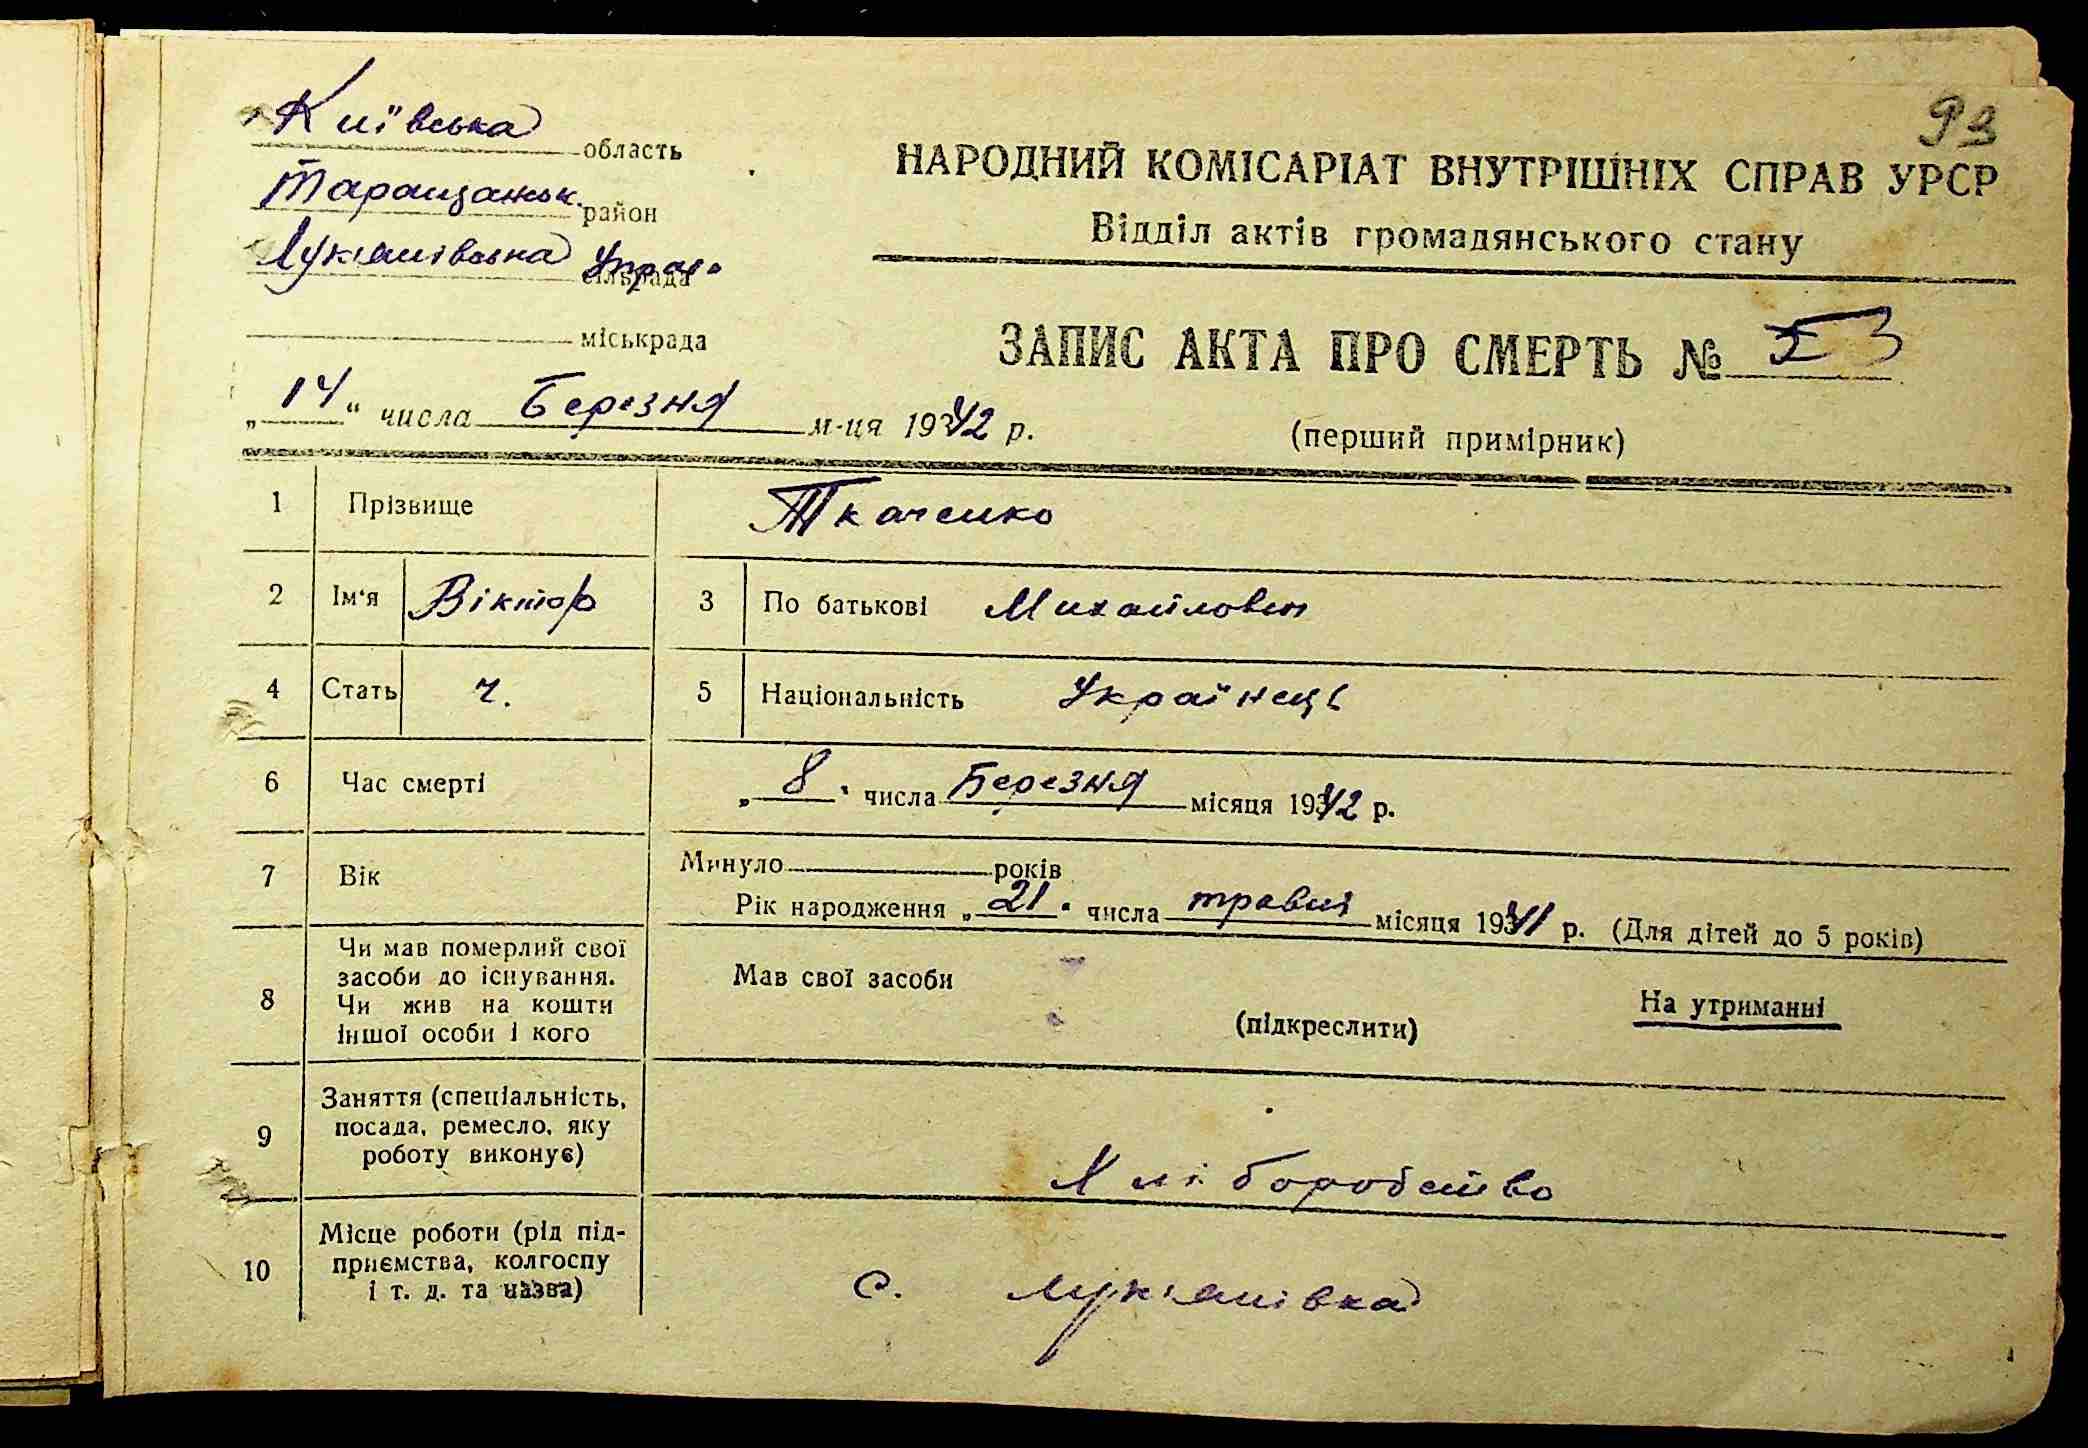 93
Київська область
Таращанськ. район
Лук'янівська сільрада Управ.
міськрада
„14“ числа Березня м-ця 1942 р.
НАРОДНИЙ КОМІСАРІАТ ВНУТРІШНІХ СПРАВ УРСР
Відділ актів громадянського стану
ЗАПИС АКТА ПРО СМЕРТЬ № 53
(перший примірник)
1 Прізвище Ткаченко
2 Ім'я Віктор 3 По батькові Михайлович
4 Стать ч. 5 Національність Українець
6 Час смерті „8“ числа Березня місяця 1942 р.
7 Вік Минуло років
Рік народження „21“ числа травня місяця 1941 р. (Для дітей до 5 років)
8 Чи мав померлий свої
засоби до існування.
Чи жив на кошти
іншої особи і кого
Мав свої засоби
(підкреслити)
На утриманні
9 Заняття (спеціальність,
посада, ремесло, яку
роботу виконує)
Хліборобство
10 Місце роботи (рід під-
приємства, колгоспу
і т. д. та назва)
с. Лук'янівка